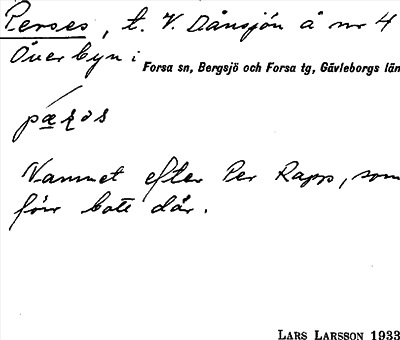 Perses, t. V. Dånsjön å nr 4
Överbyn i Forsa sn, Bergsjö och Forsa tg, Gävleborgs län
Namnet efter Per Rapp, som
förr bott där.
LARS LARSSON 1933